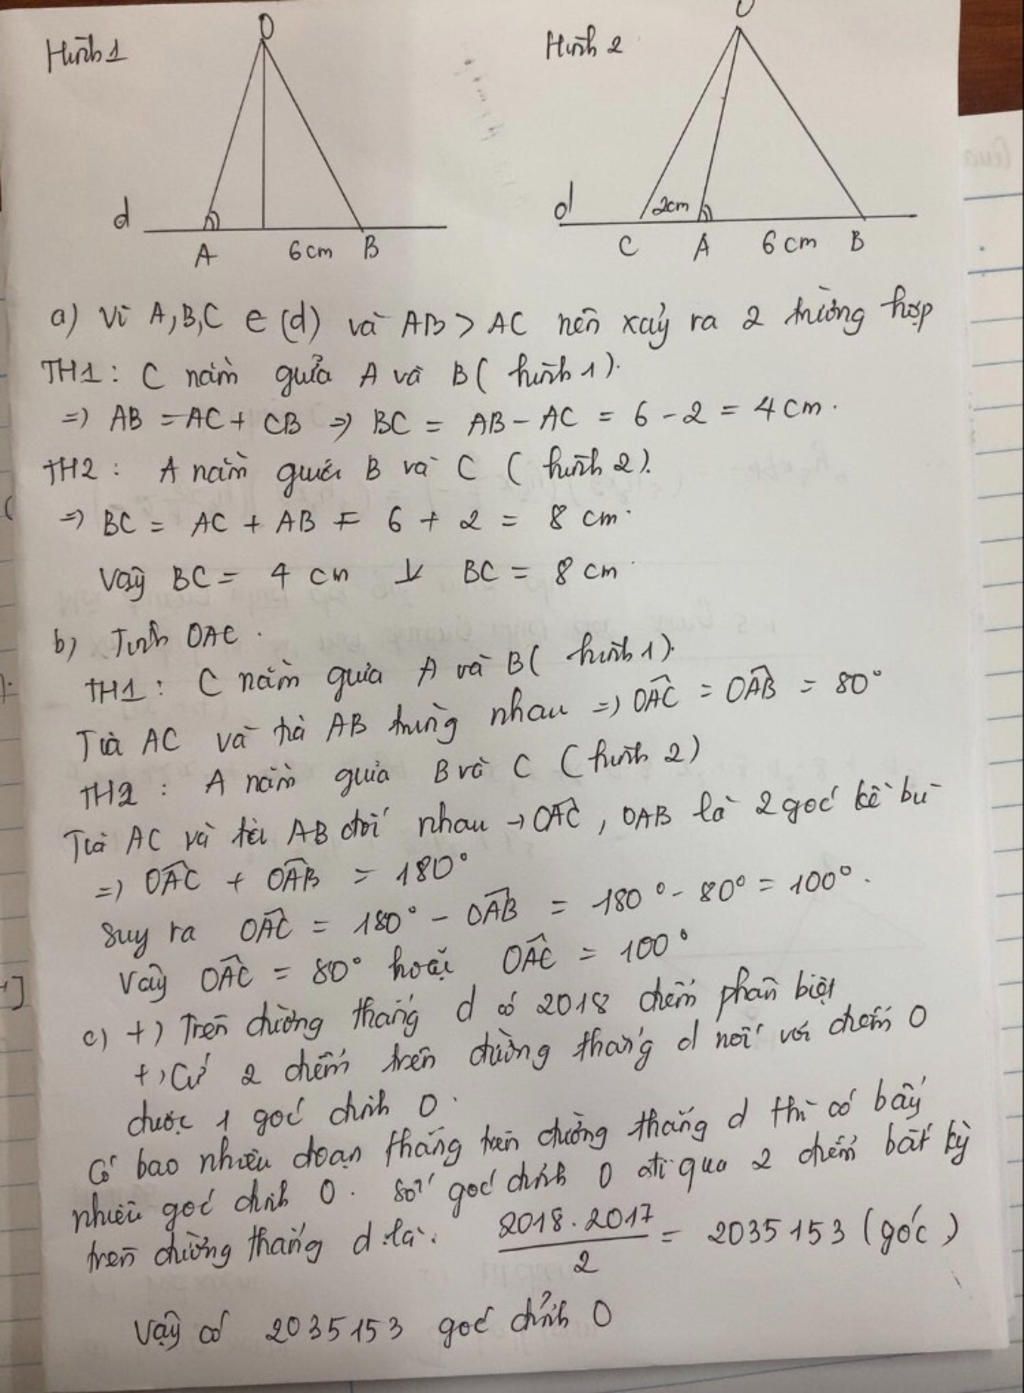 Hình 1
Hình 2
O
O
d
A
6 cm
B
d
2cm
C
A
6 cm
B
a) Vì A,B,C ∈ (d) và AB > AC nên xảy ra 2 trường hợp
TH1: C nằm giữa A và B ( hình 1).
=> AB = AC + CB => BC = AB - AC = 6 - 2 = 4 cm.
TH2: A nằm giữa B và C ( hình 2).
=> BC = AC + AB = 6 + 2 = 8 cm.
Vậy BC = 4 cm V BC = 8 cm.
b) Tính OAC.
TH1: C nằm giữa A và B( hình 1).
Tia AC và tia AB trùng nhau => OAC = OAB = 80°
TH2: A nằm giữa B và C ( hình 2)
Tia AC và tia AB đối nhau → OAC, OAB là 2 góc kề bù
=> OAC + OAB = 180°
Suy ra OAC = 180° - OAB = 180° - 80° = 100°.
Vậy OAC = 80° hoặc OAC = 100°
c) +) Trên đường thẳng d có 2018 điểm phân biệt
+) Cứ 2 điểm trên đường thẳng d nối với điểm O
được 1 góc đỉnh O.
Có bao nhiêu đoạn thẳng trên đường thẳng d thì có bấy
nhiêu góc đỉnh O. Số góc đỉnh O đi qua 2 điểm bất kỳ
trên đường thẳng d là: 2018.2017/2 = 2035153 (góc)
Vậy có 2035153 góc đỉnh O